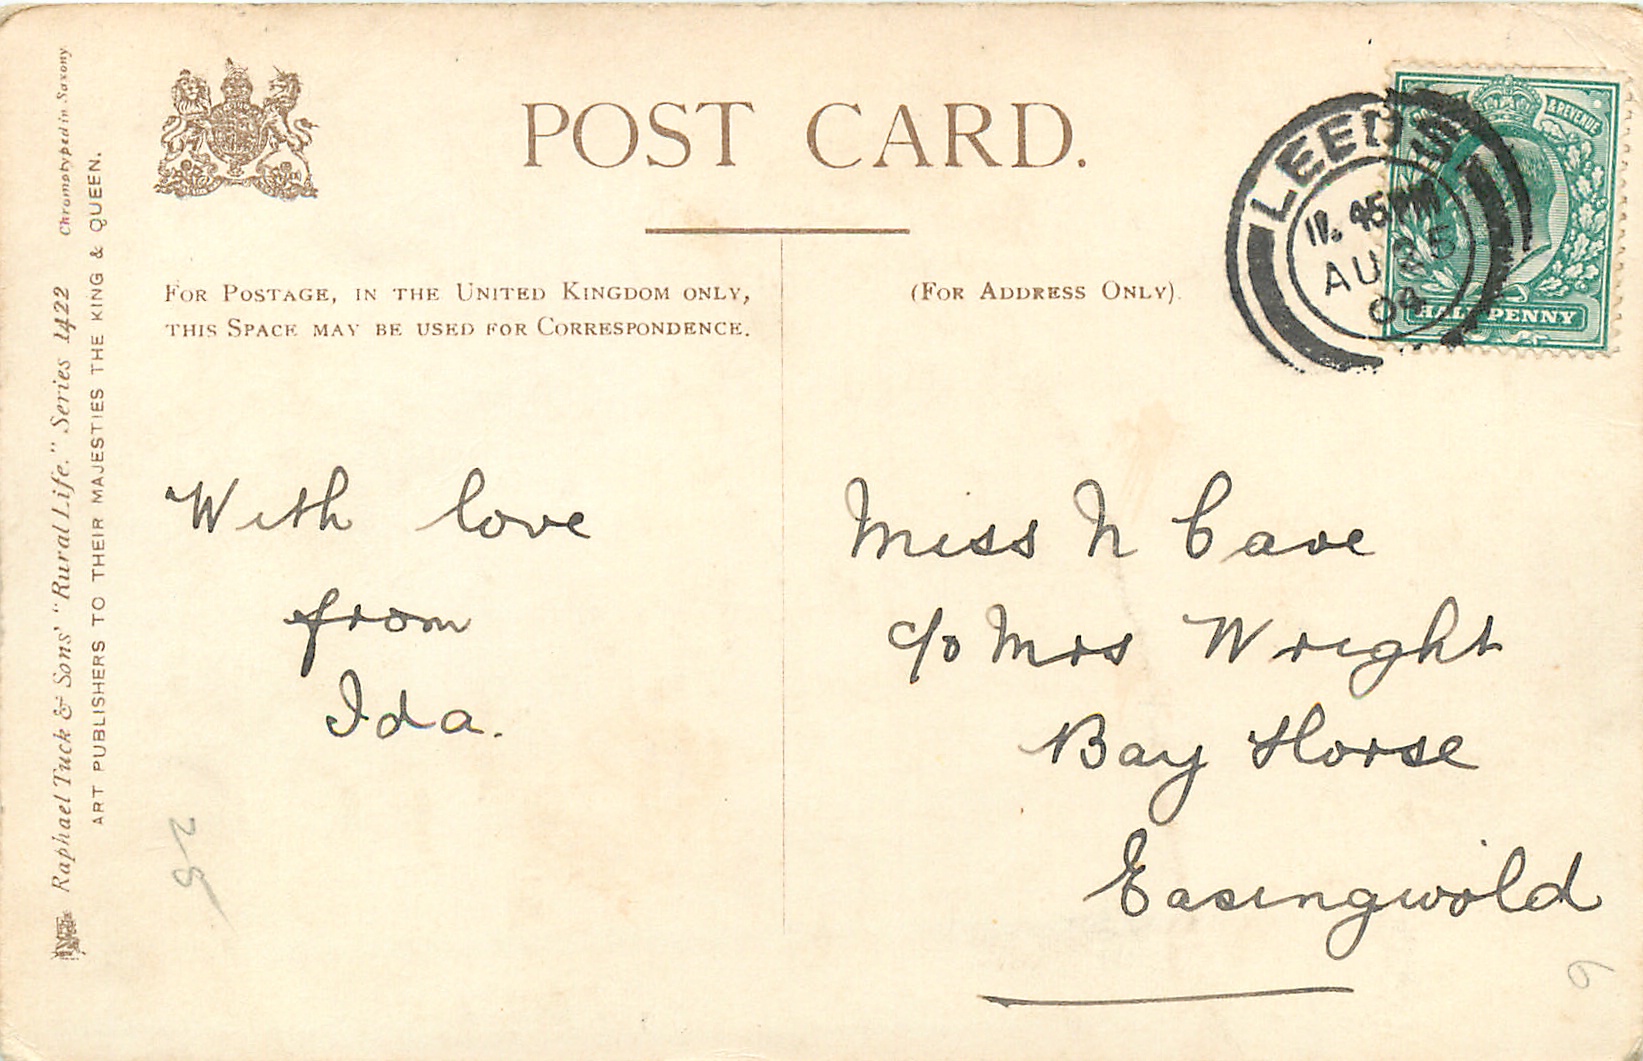 POST CARD.
FOR POSTAGE, IN THE UNITED KINGDOM ONLY,
THIS SPACE MAY BE USED FOR CORRESPONDENCE.
(FOR ADDRESS ONLY).
LEEDS
11.45PM
AU 25
04
& REVENUE
HALFPENNY
With love
from
Ida.
Miss N Cave
c/o Mrs Wright
Bay Horse
Easingwold
Raphael Tuck & Sons' "Rural Life." Series 1422 Chromotyped in Saxony
ART PUBLISHERS TO THEIR MAJESTIES THE KING & QUEEN.
6